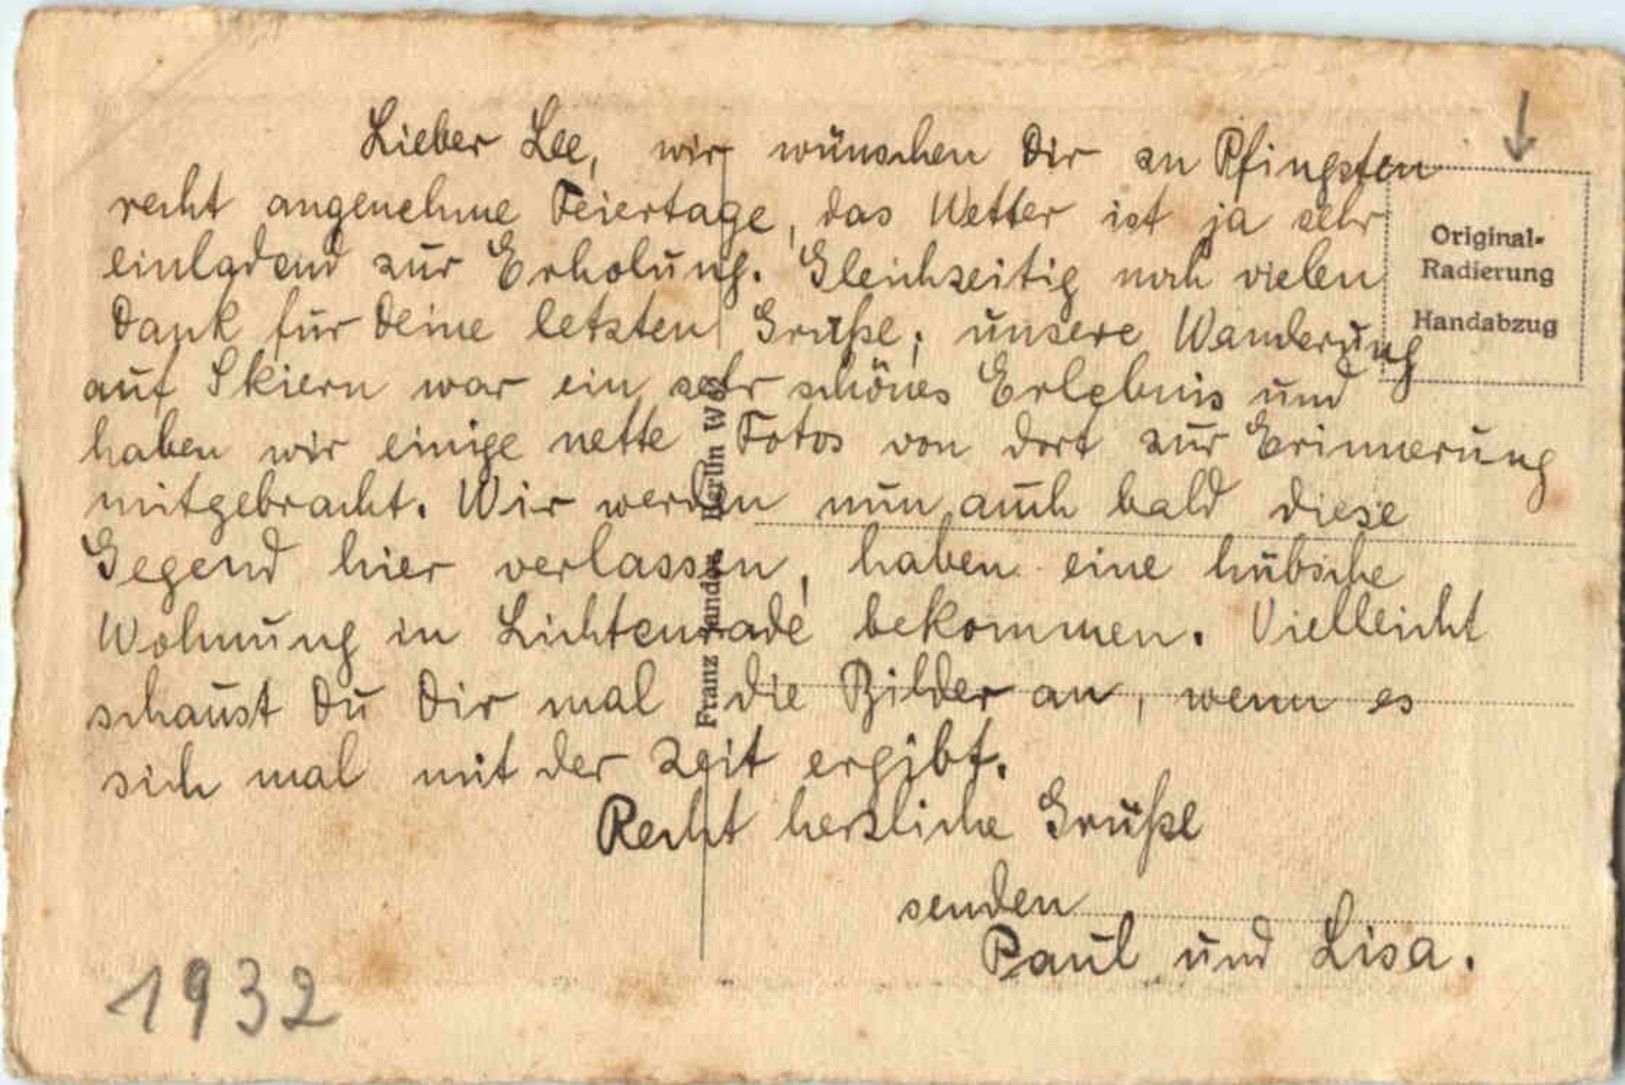 Lieber Lee, wir wünschen Dir zu Pfingsten
recht angenehme Feiertage, das Wetter ist ja sehr
einladend zur Erholung. Gleichzeitig noch vielen
Dank für Deine letzten Grüße; unsere Wanderung
auf Skiern war ein sehr schönes Erlebnis und
haben wir einige nette Fotos von dort zur Erinnerung
mitgebracht. Wir werden nun auch bald diese
Gegend hier verlassen, haben eine hübsche
Wohnung in Lichtenrade bekommen. Vielleicht
schaust Du Dir mal die Bilder an, wenn es
sich mal mit der Zeit ergibt.
Recht herzliche Grüße
senden
Paul und Lisa.
1932
Original-
Radierung
Handabzug
Franz Berlin